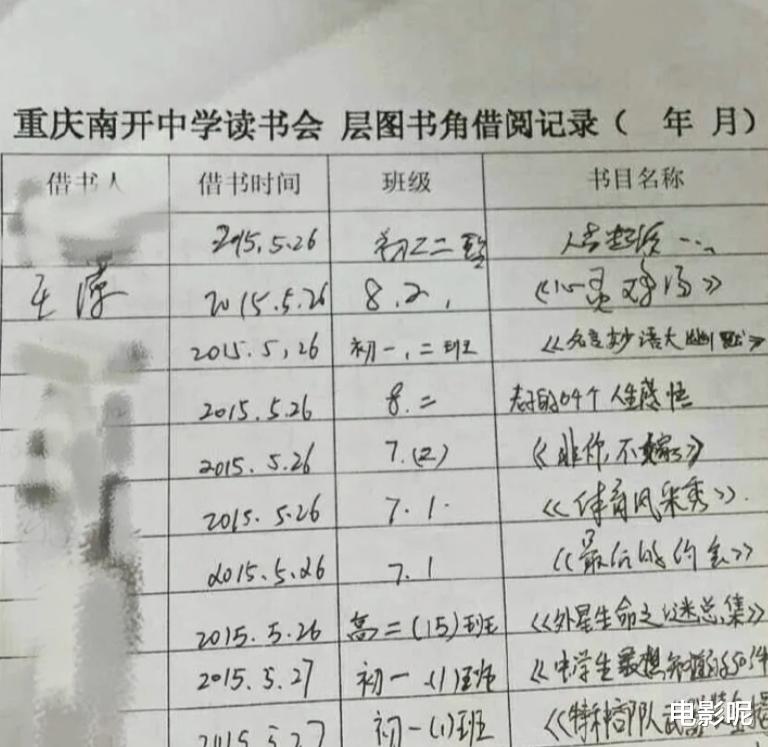 重庆南开中学读书会 层图书角借阅记录（ 年 月）
借书人 借书时间 班级 书目名称
2015.5.26 初二二班
王 2015.5.26 8.2. 《心灵鸡汤》
2015.5,26 初一.二班 《名言妙语大幽默》
2015.5.26 8.二 个人生感悟
2015.5.26 7.(2) 《非你不嫁》
2015.5.26 7.1. 《体育风采秀》.
2015.5.26 7.1 《最后的约会》
2015.5.26 高二(15)班 《外星生命之谜总集》
2015.5.27 初一(1)班 《中学生最想知道的50件
2015.5.27 初一(1)班 《特种部队武器装备
电影呢